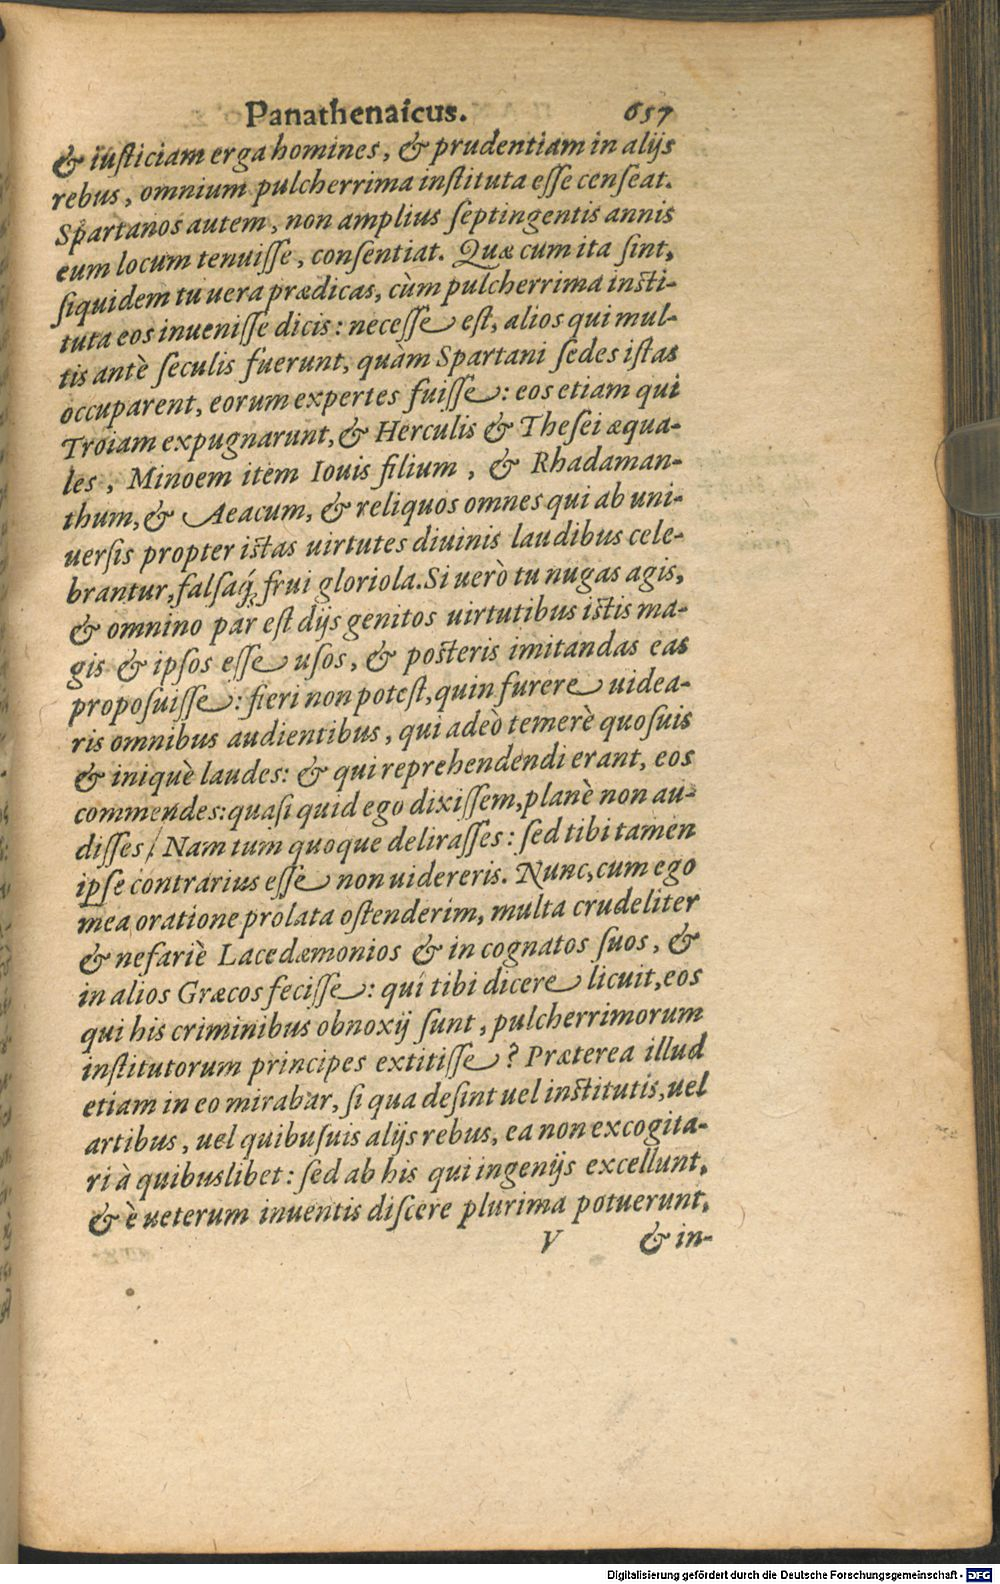 Panathenaicus. 657
& iusticiam erga homines, & prudentiam in alijs
rebus, omnium pulcherrima instituta esse censeat.
Spartanos autem, non amplius septingentis annis
eum locum tenuisse, consentiat. Quæ cum ita sint,
siquidem tu uera prædicas, cùm pulcherrima insti-
tuta eos inuenisse dicis: necesse est, alios qui mul-
tis antè seculis fuerunt, quàm Spartani sedes istas
occuparent, eorum expertes fuisse: eos etiam qui
Troiam expugnarunt, & Herculis & Thesei æqua-
les, Minoem item Iouis filium, & Rhadaman-
thum, & Aeacum, & reliquos omnes qui ab uni-
uersis propter istas uirtutes diuinis laudibus cele-
brantur, falsaq́; frui gloriola. Si uerò tu nugas agis,
& omnino par est dijs genitos uirtutibus istis ma-
gis & ipsos esse usos, & posteris imitandas eas
proposuisse: fieri non potest, quin furere uidea-
ris omnibus audientibus, qui adeò temerè quosuis
& iniquè laudes: & qui reprehendendi erant, eos
commendes: quasi quid ego dixissem, planè non au-
disses. Nam tum quoque delirasses: sed tibi tamen
ipse contrarius esse non uidereris. Nunc, cum ego
mea oratione prolata ostenderim, multa crudeliter
& nefariè Lacedæmonios & in cognatos suos, &
in alios Græcos fecisse: quí tibi dicere licuit, eos
qui his criminibus obnoxij sunt, pulcherrimorum
institutorum principes extitisse? Præterea illud
etiam in eo mirabar, si qua desint uel institutis, uel
artibus, uel quibusuis alijs rebus, ea non excogita-
ri à quibuslibet: sed ab his qui ingenijs excellunt,
& è ueterum inuentis discere plurima potuerunt,
V & in-
Digitalisierung gefördert durch die Deutsche Forschungsgemeinschaft - DFG